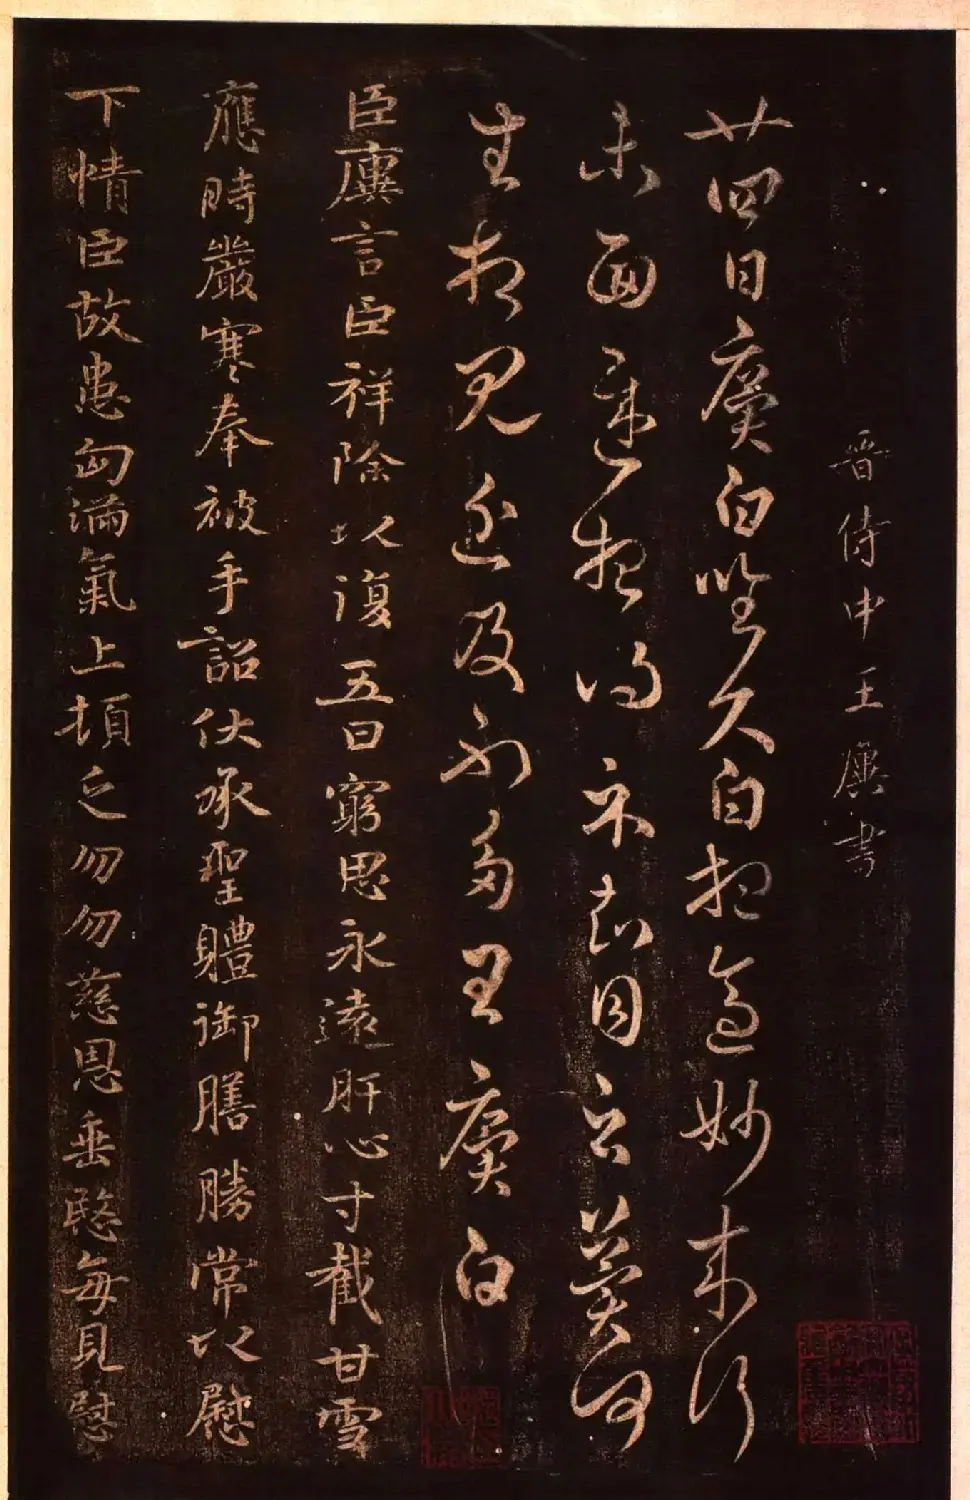 晉侍中王廙書
廿四日廙白昨久白想適妙未行
未面遲想得示知問
生想見近及不多王廙白
臣廙言臣祥除以復五日窮思永遠肝心寸截甘雪
應時嚴寒奉被手詔伏承聖體御膳勝常以慰
下情臣故患匈滿氣上頓乏勿勿慈恩垂愍每見慰